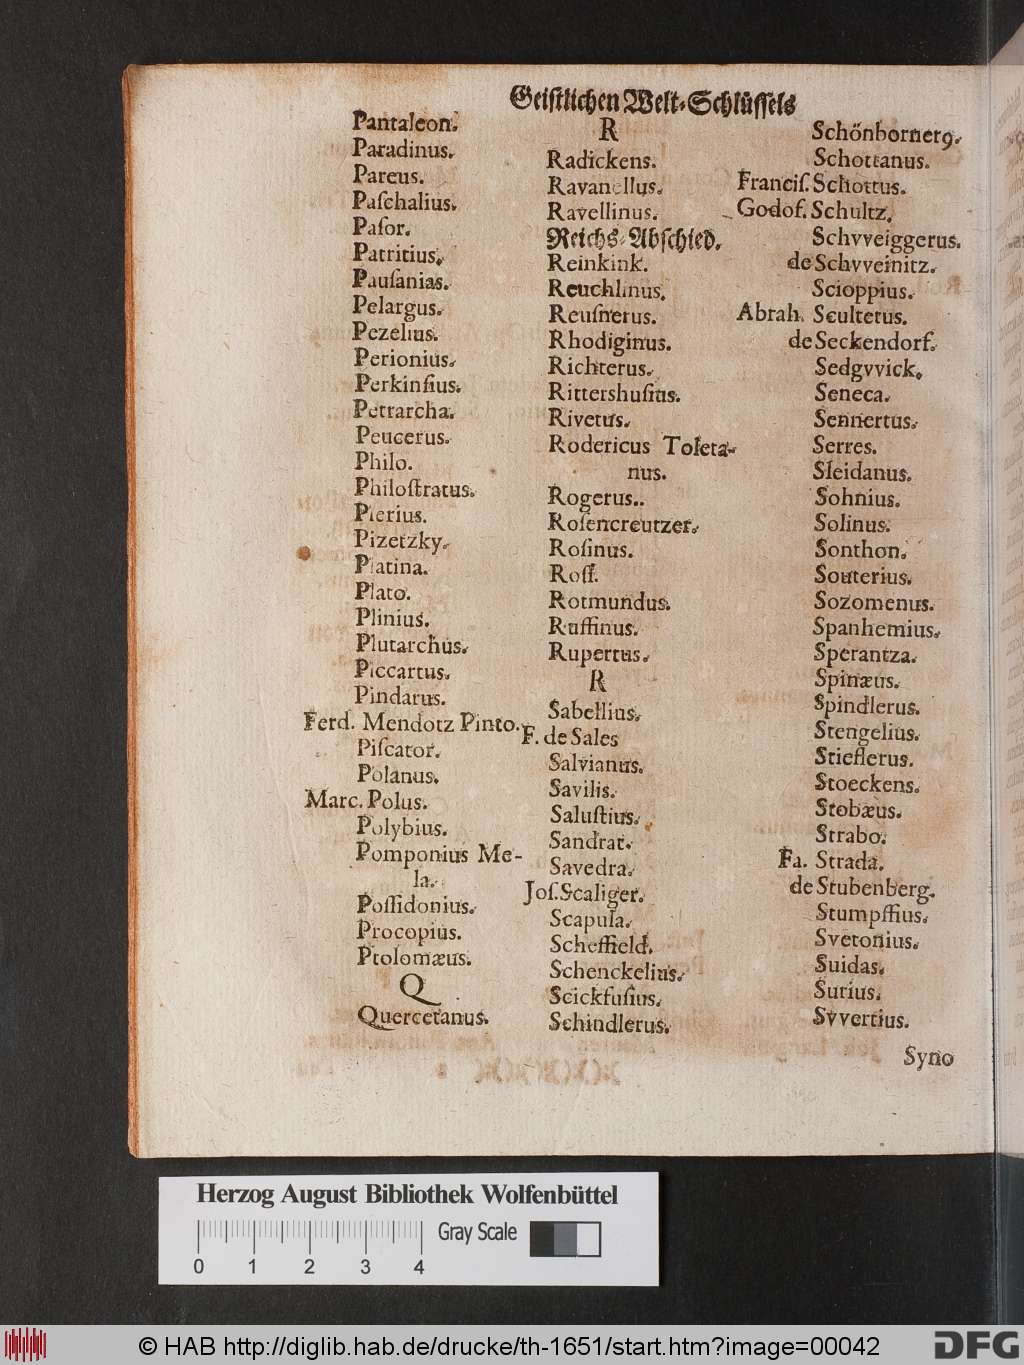 Geiſtlichen Welt-Schlüſſels
Pantaleon.
Paradinus.
Pareus.
Paſchalius.
Paſor.
Patritius.
Pauſanias.
Pelargus.
Pezelius.
Perionius.
Perkinſius.
Petrarcha.
Peucerus.
Philo.
Philoſtratus.
Pierius.
Pizetzky.
Platina.
Plato.
Plinius.
Plutarchus.
Piccartus.
Pindarus.
Ferd. Mendotz Pinto.
Piſcator.
Polanus.
Marc. Polus.
Polybius.
Pomponius Me-
la.
Poſſidonius.
Procopius.
Ptolomæus.
Q
Quercetanus.
R
Radickens.
Ravanellus.
Ravellinus.
Reichs-Abſchied.
Reinkink.
Reuchlinus.
Reuſnerus.
Rhodiginus.
Richterus.
Rittershuſius.
Rivetus.
Rodericus Toleta-
nus.
Rogerus..
Roſencreutzer.
Roſinus.
Roſſ.
Rotmundus.
Ruffinus.
Rupertus.
R
Sabellius.
F. de Sales
Salvianus.
Savilis.
Saluſtius.
Sandrat.
Savedra.
Joſ. Scaliger.
Scapula.
Scheffield.
Schenckelius.
Scickfuſius.
Schindlerus.
Schönbornerꝰ.
Schottanus.
Franciſ. Schottus.
Godof. Schultz.
Schvveiggerus.
de Schvveinitz.
Scioppius.
Abrah. Scultetus.
de Seckendorf.
Sedgvvick.
Seneca.
Sennertus.
Serres.
Sleidanus.
Sohnius.
Solinus.
Sonthon.
Souterius.
Sozomenus.
Spanhemius.
Sperantza.
Spinæus.
Spindlerus.
Stengelius.
Stieflerus.
Stoeckens.
Stobæus.
Strabo.
Fa. Strada.
de Stubenberg.
Stumpffius.
Svetonius.
Suidas.
Surius.
Svvertius.
Syno
Herzog August Bibliothek Wolfenbüttel
Gray Scale
0 1 2 3 4
© HAB http://diglib.hab.de/drucke/th-1651/start.htm?image=00042
DFG